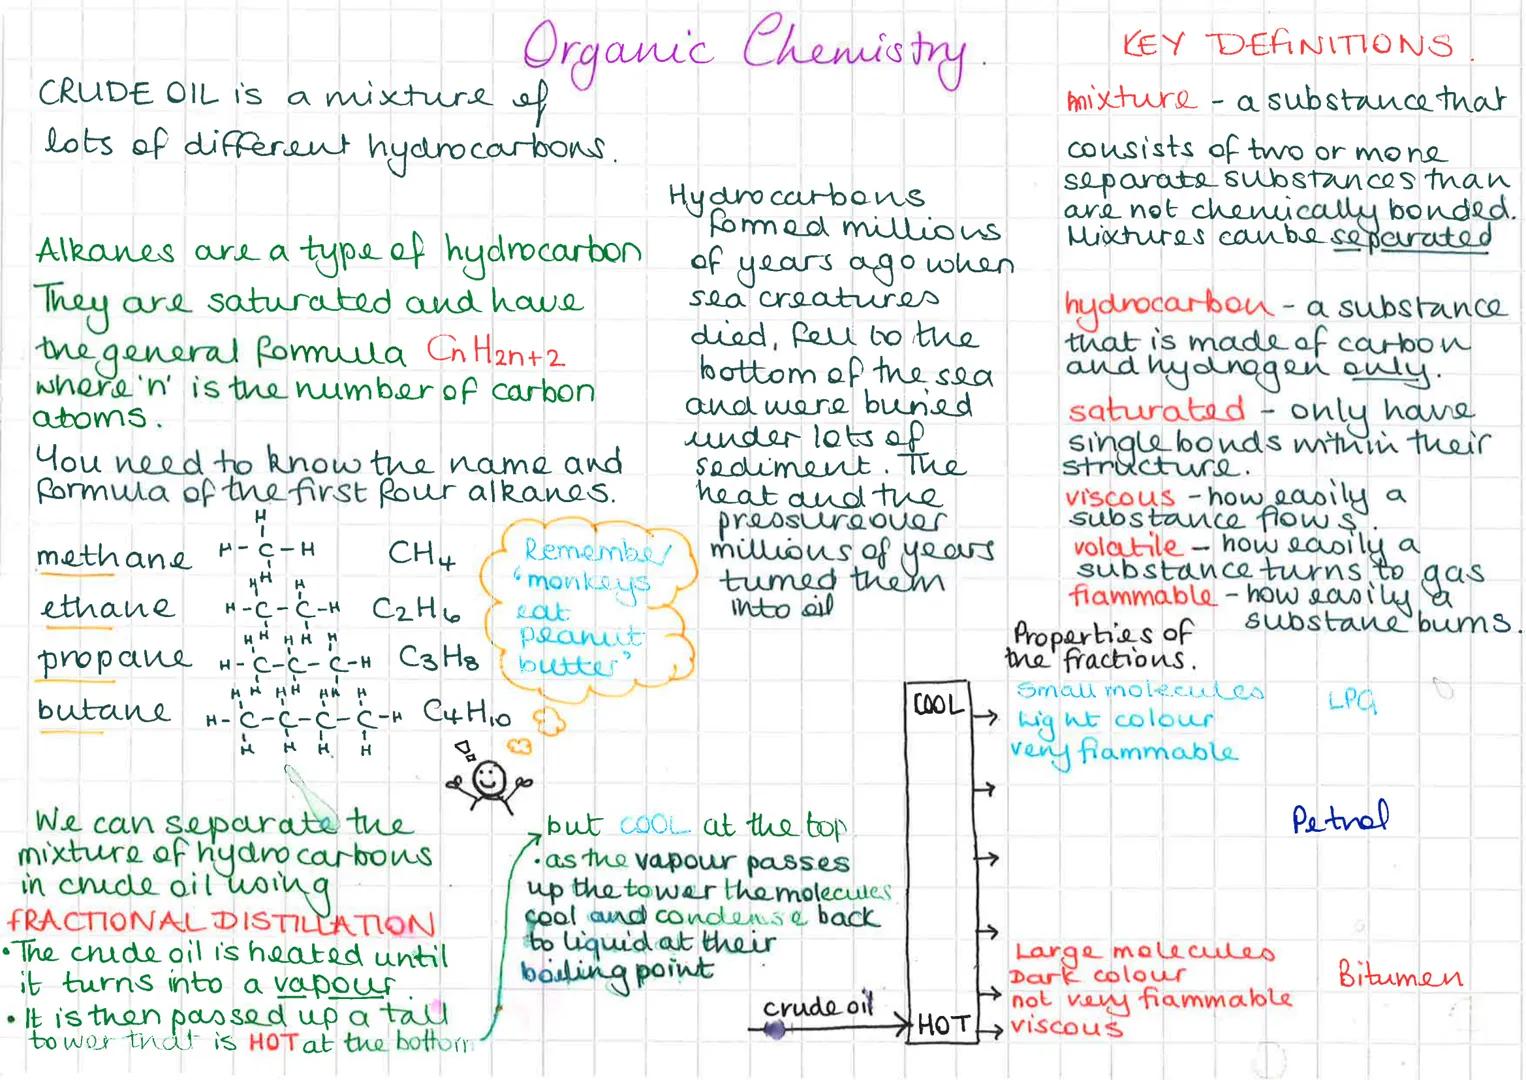 Organic Chemistry.
CRUDE OIL is a mixture of
lots of different hydrocarbons.
Alkanes are a type of hydrocarbon
They are saturated and have
the general formula CnH2n+2
where 'n' is the number of carbon
atoms.
You need to know the name and
formula of the first four alkanes.
methane
CH4
ethane
C2H6
propane
C3H8
butane
C4H10
H
H-C-H
H
H H
H-C-C-H
H H
H H H
H-C-C-C-H
H H H
H H H H
H-C-C-C-C-H
H H H H
Remember
"monkeys
eat
peanut
butter"
We can separate the
mixture of hydrocarbons
in crude oil using
FRACTIONAL DISTILLATION
• The crude oil is heated until
it turns into a vapour.
• It is then passed up a tall
tower that is HOT at the bottom
but COOL at the top
• as the vapour passes
up the tower the molecules
cool and condense back
to liquid at their
boiling point
Hydrocarbons
formed millions
of years ago when
sea creatures
died, fell to the
bottom of the sea
and were buried
under lots of
sediment. The
heat and the
pressure over
millions of years
turned them
into oil
KEY DEFINITIONS.
mixture - a substance that
consists of two or more
separate substances than
are not chemically bonded.
Mixtures can be separated
hydrocarbon - a substance
that is made of carbon
and hydrogen only.
saturated - only have
single bonds within their
structure.
viscous - how easily a
substance flows.
volatile - how easily a
substance turns to gas
flammable - how easily a
substane burns.
Properties of
the fractions.
COOL
Small molecules
Light colour
very flammable
LPG
Petrol
Large molecules
Dark colour
not very flammable
viscous
Bitumen
crude oil
HOT